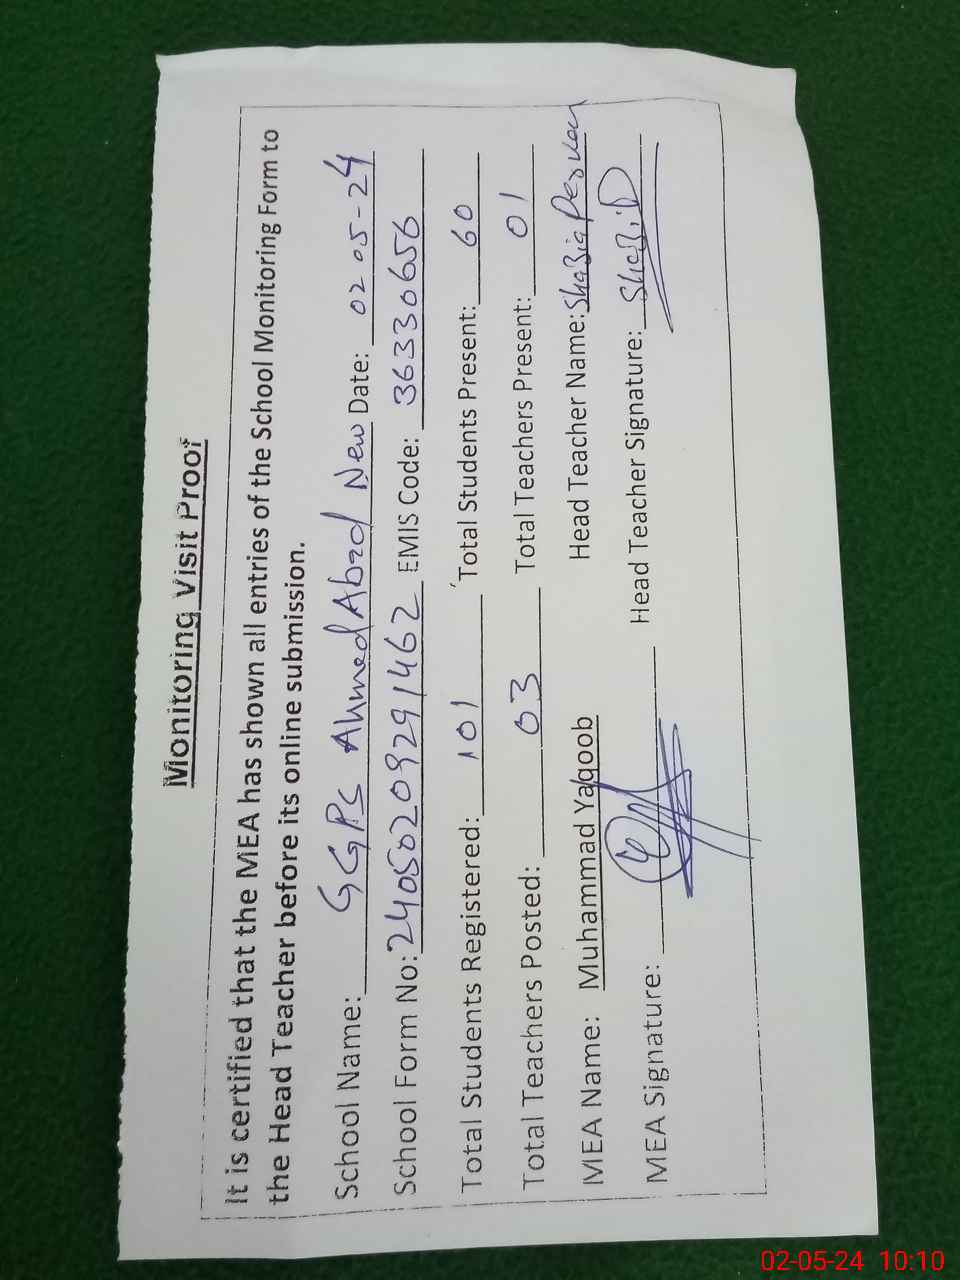 Monitoring Visit Proof
It is certified that the MEA has shown all entries of the School Monitoring Form to
the Head Teacher before its online submission.
School Name: GGPS Ahmed Abad New Date: 02-05-24
School Form No: 24050209291462 EMIS Code: 36330656
Total Students Registered: 101 Total Students Present: 60
Total Teachers Posted: 03 Total Teachers Present: 01
MEA Name: Muhammad Yaqoob Head Teacher Name: Shazia Perveen
MEA Signature: Head Teacher Signature:
02-05-24 10:10